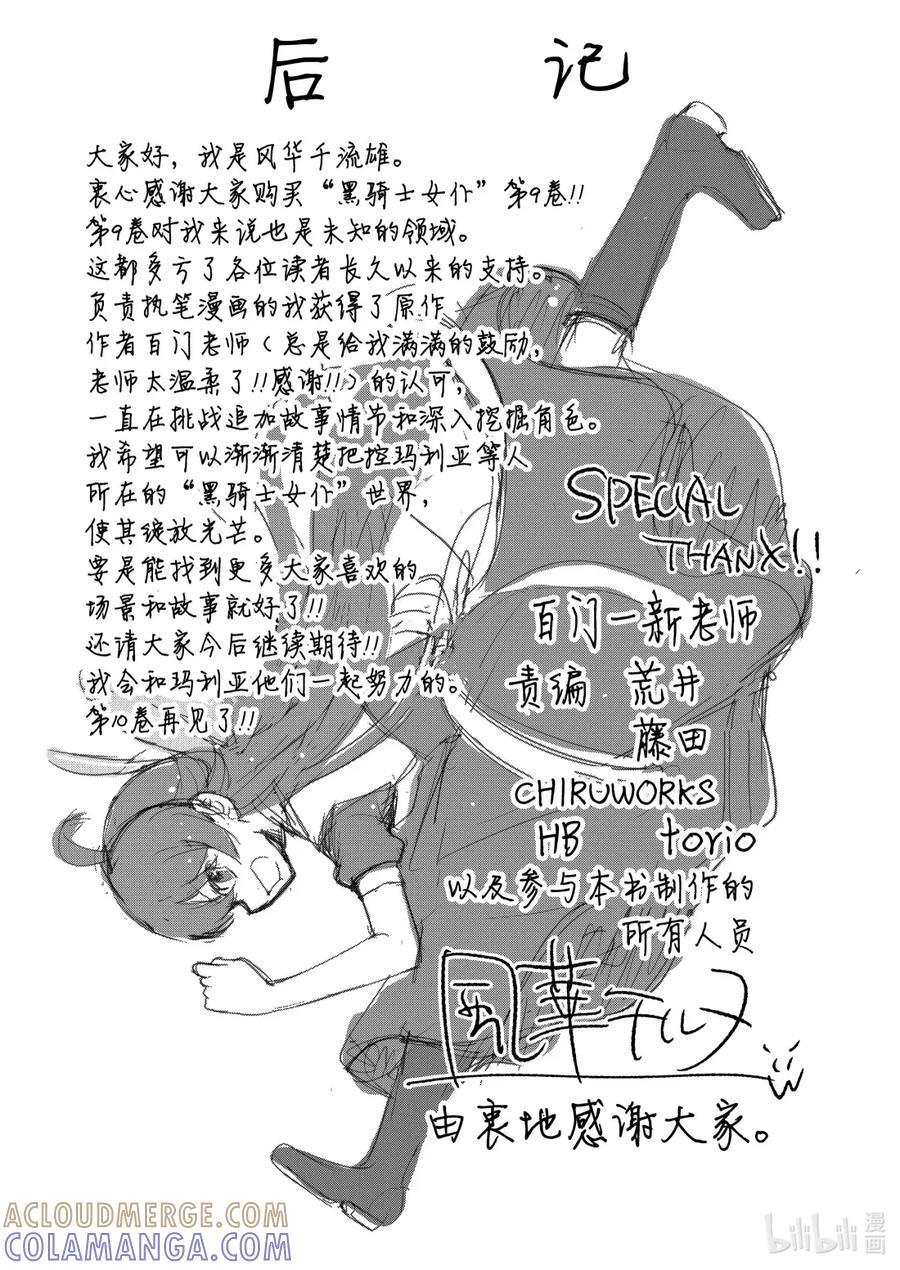 后 记
大家好，我是风华千流雄。
衷心感谢大家购买“黑骑士女仆”第9卷!!
第9卷对我来说也是未知的领域。
这都多亏了各位读者长久以来的支持。
负责执笔漫画的我获得了原作
作者百门老师（总是给我满满的鼓励，
老师太温柔了!!感谢!!）的认可，
一直在挑战追加故事情节和深入挖掘角色。
我希望可以渐渐清楚把控玛利亚等人
所在的“黑骑士女仆”世界，
使其绽放光芒。
要是能找到更多大家喜欢的
场景和故事就好了!!
还请大家今后继续期待!!
我会和玛利亚他们一起努力的。
第10卷再见了!!
SPECIAL
THANX!!
百门一新老师
责编 荒井
藤田
CHIRUWORKS
HB torio
以及参与本书制作的
所有人员
風華チルヲ
由衷地感谢大家。
ACLOUDMERGE.COM
COLAMANGA.COM
bilibili 漫画